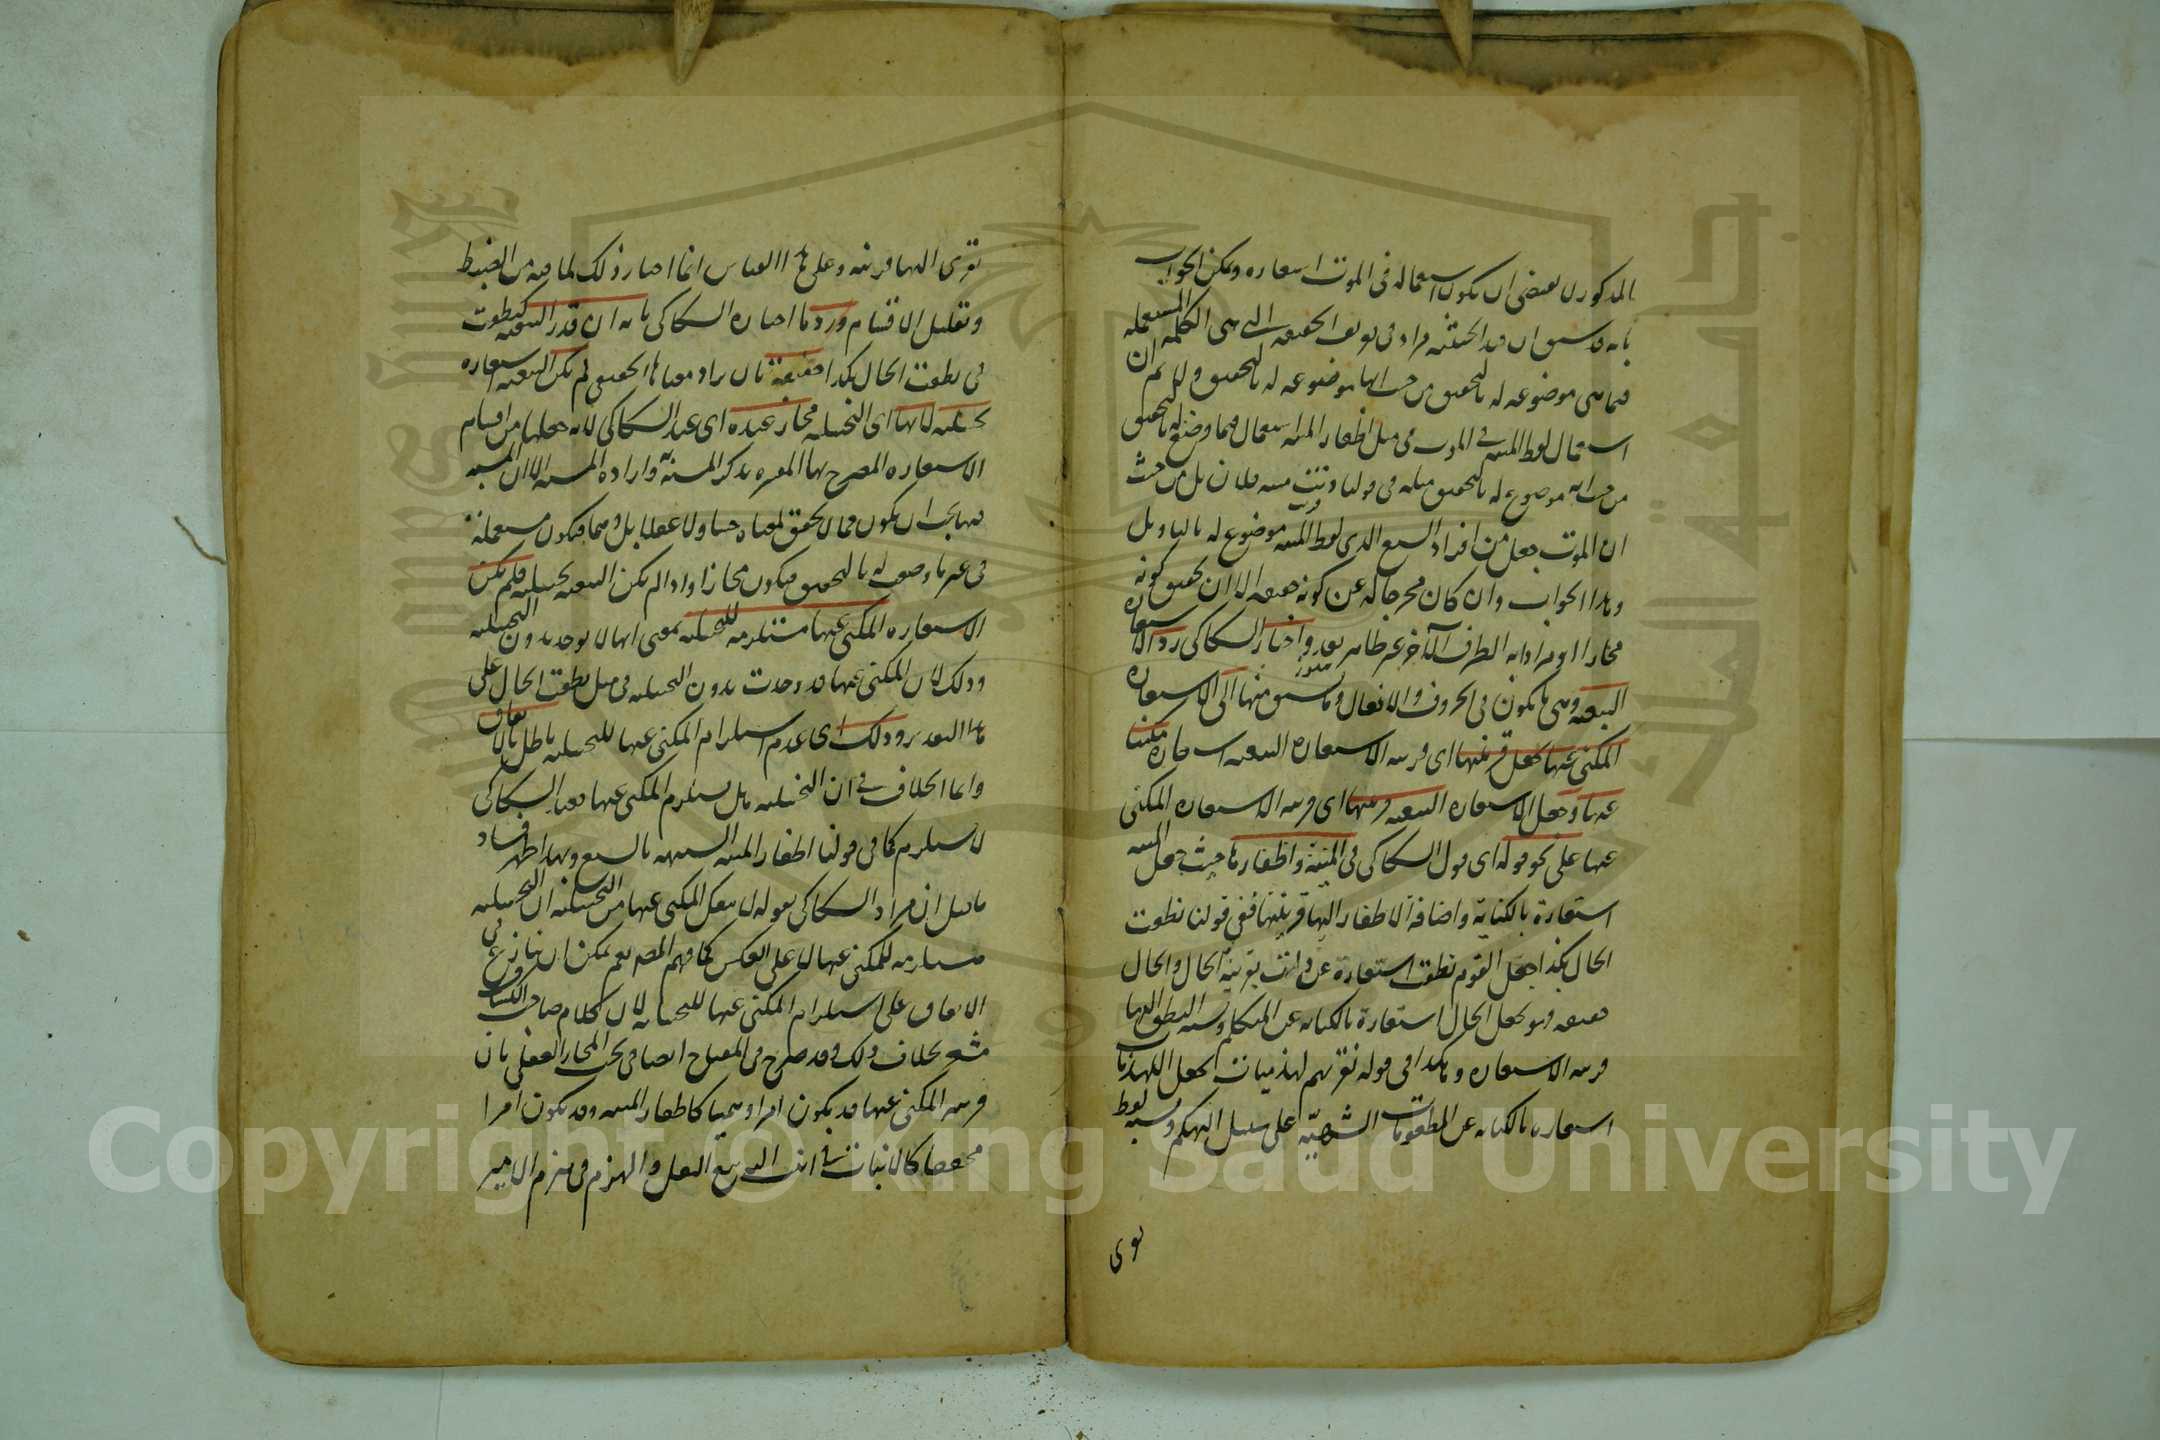 المذكور لا يقتضي ان يكون استعماله في الموت استعارة ويمكن الجواب
بانه قد سبق ان قيد الحيثية مراد في تعريف الحقيقة اي هي الكلمة المستعملة
فيما هي موضوعة له بالتحقيق من حيث انها موضوعة له بالتحقيق ولا نم ان
استعمال لفظ المنية في الموت في مثل اظفار المنية استعمال فيما وضع له بالتحقيق
من حيث انه موضوع له بالتحقيق مثله في قولنا دنت منية فلان بل من حيث
ان الموت جعل من افراد السبع الذي لفظ المنية موضوع له بالتاويل
وهذا الجواب وان كان مخرجا له عن كونه حقيقة الا ان تحقيق كونه
مجازا او مرادا به الطرف الآخر غير ظاهر بعد واختار السكاكي رد الاستعارة
التبعية وهي ما تكون في الحروف والافعال وما يشتق منها الى الاستعارة
المكني عنها بجعل قرينتها اي قرينة الاستعارة التبعية استعارة مكنيا
عنها وجعل الاستعارة التبعية قرينتها اي قرينة الاستعارة المكني
عنها على نحو قوله اي قول السكاكي في المنية واظفارها حيث جعل المنية
استعارة بالكناية واضافة الاظفار اليها قرينتها ففي قولنا نطقت
الحال بكذا جعل القوم نطقت استعارة عن دلت بقرينة الحال والحال
حقيقة وهو يجعل الحال استعارة بالكناية عن المتكلم ونسبة النطق اليها
قرينة الاستعارة وهكذا في قوله نقريهم لهذميات يجعل اللهذميات
استعارة بالكناية عن المطعومات الشهية على سبيل التهكم ونسبة لفظ
القرى اليها قرينة وعلى هذا القياس انما اختار ذلك لما فيه من الضبط
وتقليل الاقسام ورد ما اختاره السكاكي بانه ان قدر التبعية كنطقت
في نطقت الحال بكذا حقيقة بان يراد معناها الحقيقي لم تكن التبعية استعارة
تخييلية لانها اي التخييلية مجاز عنده اي عند السكاكي لانه جعلها من اقسام
الاستعارة المصرح بها المفسرة بذكر المشبه به وارادة المشبه الا ان المشبه
فيها يجب ان يكون مما لا تحقق لمعناه حسا ولا عقلا بل وهما فيكون مستعملة
في غير ما وضعت له بالتحقيق فيكون مجازا واذا لم تكن التبعية تخييلية فلم تكن
الاستعارة المكني عنها مستلزمة للتخييلية بمعنى انها لا توجد بدون التخييلية
وذلك لان المكني عنها قد وجدت بدون التخييلية في مثل نطقت الحال على
هذا التقدير وذلك اي عدم استلزام المكني عنها للتخييلية باطل بالاتفاق
وانما الخلاف في ان التخييلية هل تستلزم المكني عنها فعند السكاكي
لا تستلزم كما في قولنا اظفار المنية الشبيهة بالسبع وبهذا ظهر فساد
ما قيل ان مراد السكاكي بقوله لا تنفك المكني عنها عن التخييلية ان التخييلية
مستلزمة للمكني عنها لا على العكس كما فهم المصنف نعم يمكن ان ينازع في
الاتفاق على استلزام المكني عنها للتخييلية لان كلام صاحب الكشاف
مشعر بخلاف ذلك وقد صرح في المفتاح ايضا في بحث المجاز العقلي بان
قرينة المكني عنها قد تكون امرا وهميا كاظفار المنية وقد تكون امرا
محققا كالانبات في انبت الربيع البقل والهزم في هزم الامير